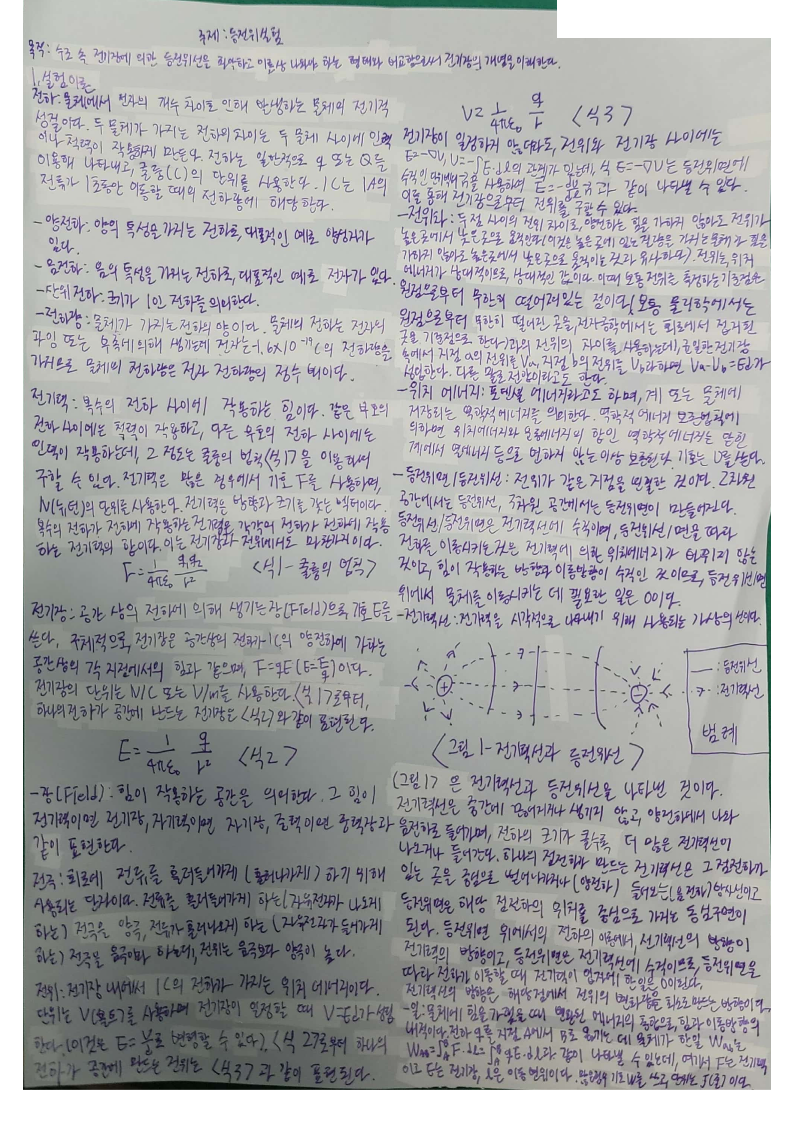 주제 : 등전위실험
목적 : 수조 속 전기장에 의한 등전위선을 파악하고 이론상 나와야 하는 형태와 비교함으로써 전기장의 개념을 이해한다.
1. 실험이론
전하 : 물체에서 전자의 개수 차이로 인해 발생하는 물체의 전기적
성질이다. 두 물체가 가지는 전하의 차이는 두 물체 사이에 인력
이나 척력이 작용하게 만든다. 전하는 일반적으로 q 또는 Q를
이용해 나타내고, 쿨롱(C)의 단위를 사용한다. 1C는 1A의
전류가 1초동안 이동할 때의 전하량에 해당한다.
- 양전하 : 양의 특성을 가지는 전하로, 대표적인 예로 양성자가
있다.
- 음전하 : 음의 특성을 가지는 전하로, 대표적인 예로 전자가 있다.
- 단위 전하 : 크기가 1인 전하를 의미한다.
- 전하량 : 물체가 가지는 전하의 양이다. 물체의 전하는 전자의
과잉 또는 부족에 의해 생기는데 전자는 -1.6×10⁻¹⁹C의 전하량을
가지므로 물체의 전하량은 전자 전하량의 정수 배이다.
전기력 : 복수의 전하 사이에 작용하는 힘이다. 같은 부호의
전하 사이에는 척력이 작용하고, 다른 부호의 전하 사이에는
인력이 작용하는데, 그 정도는 쿨롱의 법칙<식1>을 이용해서
구할 수 있다. 전기력은 많은 경우에서 기호 F를 사용하며,
N(뉴턴)의 단위를 사용한다. 전기력은 방향과 크기를 갖는 벡터이다.
복수의 전하가 전하에 작용하는 전기력은 각각의 전하가 전하에 작용
하는 전기력의 합이다. 이는 전기장과 전위에서도 마찬가지이다.
F = 1/4πε₀ q₁q₂/r² <식1 - 쿨롱의 법칙>
전기장 : 공간 상의 전하에 의해 생기는 장(Field)으로, 기호 E를
쓴다. 구체적으로, 전기장은 공간상의 전하가 1C의 양전하에 가하는
공간상의 각 지점에서의 힘과 같으며, F=qE (E=F/q)이다.
전기장의 단위는 N/C 또는 V/m를 사용한다. <식1>로부터,
하나의 전하가 공간에 만드는 전기장은 <식2>와 같이 표현된다.
E = 1/4πε₀ q/r² <식2>
- 장(Field) : 힘이 작용하는 공간을 의미한다. 그 힘이
전기력이면 전기장, 자기력이면 자기장, 중력이면 중력장과
같이 표현한다.
전극 : 회로에 전류를 흘러들어가게 (흘러나가게) 하기 위해
사용되는 단자이다. 전류를 흘러들어가게 하는 (자유전자가 나오게
하는) 전극을 양극, 전류가 흘러나오게 하는 (자유전자가 들어가게
하는) 전극을 음극이라 하는데, 전위는 음극보다 양극이 높다.
전위 : 전기장 내에서 1C의 전하가 가지는 위치 에너지이다.
단위는 V(볼트)를 사용하며 전기장이 일정할 때 V=Ed가 성립
한다. (이것은 E=V/d로 변형할 수 있다). <식2>로부터 하나의
전하가 공간에 만드는 전위는 <식3>과 같이 표현된다.
V = 1/4πε₀ q/r <식3>
전기장이 일정하지 않더라도, 전위와 전기장 사이에는
E=-∇V, V=-∫E·dl의 관계가 있는데, 식 E=-∇V는 등전위면에
수직인 단위벡터 을 사용하여 E=- 과 같이 나타낼 수 있다.
이를 통해 전기장으로부터 전위를 구할 수 있다.
- 전위차 : 두 점 사이의 전위 차이로, 양전하는 힘을 가하지 않아도 전위가
높은 곳에서 낮은 곳으로 움직인다(이것은 높은 곳에 있는 질량을 가지는 물체가 힘을
가하지 않아도 높은 곳에서 낮은 곳으로 움직이는 것과 유사하다). 전위는, 위치
에너지가 상대적이므로, 상대적인 값이다. 이때 보통 전위를 측정하는 기준점은
원점으로부터 무한히 떨어져있는 점이다(보통 물리학에서는
원점으로부터 무한히 떨어진 곳을, 전자공학에서는 회로에서 접지된
곳을 기준점으로 한다.) 과의 전위의 차이를 사용하는데, 균일한 전기장
속에서 지점 a의 전위를 Va, 지점 b의 전위를 Vb라하면 Va-Vb=Ed가
성립한다. 다른 말로 전압이라고도 한다.
- 위치 에너지 : 포텐셜 에너지라고도 하며, 계 또는 물체에
저장되는 역학적에너지를 의미한다. 역학적 에너지 보존법칙에
의하면 위치에너지와 운동에너지의 합인 역학적에너지는 닫힌
계에서 열에너지 등으로 변하지 않는 이상 보존된다. 기호는 U를 쓴다.
- 등전위면/등전위선 : 전위가 같은 지점을 연결한 것이다. 2차원
공간에서는 등전위선, 3차원 공간에서는 등전위면이 만들어진다.
등전위선/등전위면은 전기력선에 수직이며, 등전위선/면을 따라
전하를 이동시키는 것은 전기력에 의한 위치에너지가 바뀌지 않는
것이고, 힘이 작용하는 방향과 이동방향이 수직인 것이므로, 등전위선/면
위에서 물체를 이동시키는 데 필요한 일은 0이다.
- 전기력선 : 전기력을 시각적으로 나타내기 위해 사용되는 가상의 선이다.
+
−
: 등전위선
: 전기력선
범례
<그림1 - 전기력선과 등전위선>
<그림1>은 전기력선과 등전위선을 나타낸 것이다.
전기력선은 중간에 끊어지거나 생기지 않고, 양전하에서 나와
음전하로 들어가며, 전하의 크기가 클수록 더 많은 전기력선이
나오거나 들어간다. 하나의 점전하가 만드는 전기력선은 그 점전하가
있는 곳을 중심으로 뻗어나가거나(양전하) 들어오는(음전하) 방사선이고
등전위면은 해당 점전하의 위치를 중심으로 가지는 동심구면이
된다. 등전위면 위에서의 전하의 이동에서, 전기력선의 방향이
전기력의 방향이고, 등전위면은 전기력선에 수직이므로, 등전위면을
따라 전하가 이동할 때 전기력이 입자에 한 일은 0이된다.
전기력선의 방향은 해당점에서 전위의 변화량을 최소로 만드는 방향이다.
- 일 : 물체에 힘을 가했을 때 변화된 에너지의 총합으로, 힘과 이동방향의
내적이다. 전하 q를 지점 A에서 B로 옮기는 데 물체가 한일 Wab는
Wab=∫F·dl=∫qE·dl과 같이 나타낼 수 있는데, 여기서 F는 전기력
이고 E는 전기장, l은 이동 변위이다. 많은경우 기호 W를 쓰고, 단위는 J(줄)이다.